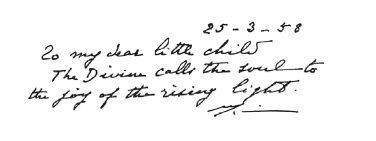 25-3-58
To my dear little child
The Divine calls the soul to
the joy of the rising light.